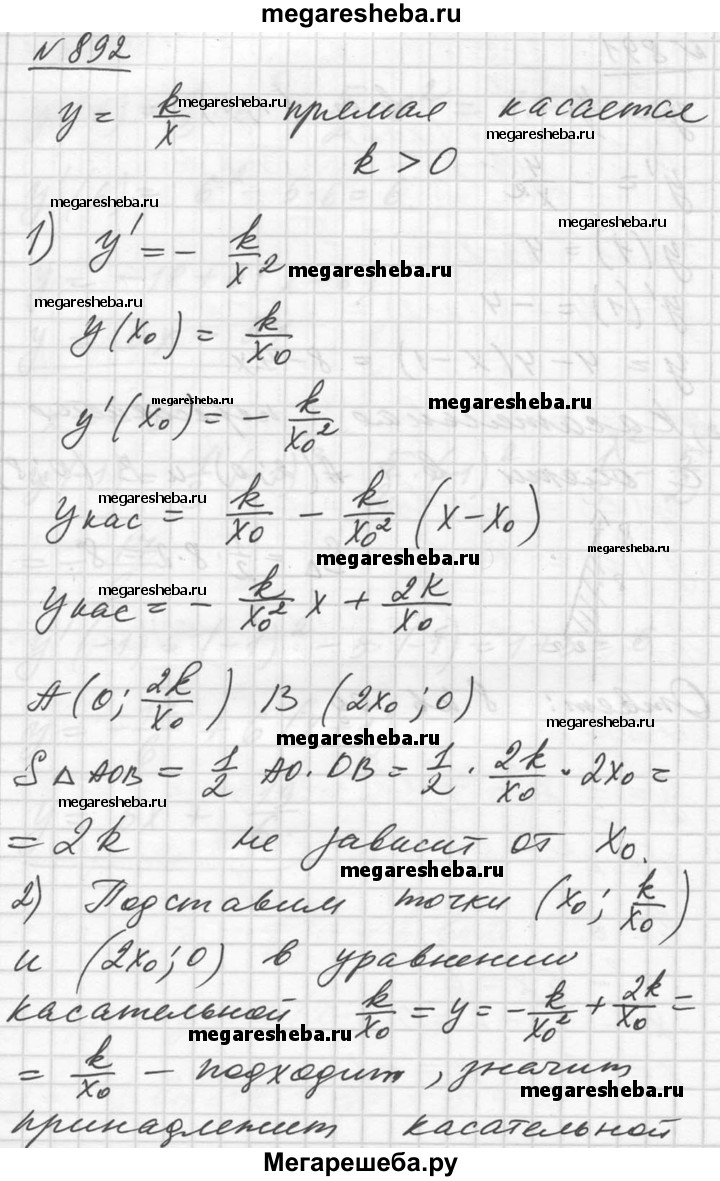 megaresheba.ru
№ 892
y = k/x megaresheba.ru прямая касается megaresheba.ru
k > 0
megaresheba.ru
megaresheba.ru
1) y' = - k/x² megaresheba.ru
megaresheba.ru
y(x₀) = k/x₀
megaresheba.ru megaresheba.ru
y'(x₀) = - k/x₀²
megaresheba.ru
yкас = k/x₀ - k/x₀² (x - x₀)
megaresheba.ru megaresheba.ru
megaresheba.ru
yкас = - k/x₀² x + 2k/x₀
A(0; 2k/x₀) B (2x₀; 0)
megaresheba.ru
megaresheba.ru
S△AOB = 1/2 AO·OB = 1/2 · 2k/x₀ · 2x₀ =
megaresheba.ru
= 2k не зависит от x₀.
megaresheba.ru
2) Подставим точки (x₀; k/x₀)
и (2x₀; 0) в уравнении
megaresheba.ru
касательной k/x₀ = y = - k/x₀² + 2k/x₀ =
megaresheba.ru
= k/x₀ - подходит, значит
megaresheba.ru
принадлежит касательной
Мегарешеба.ру